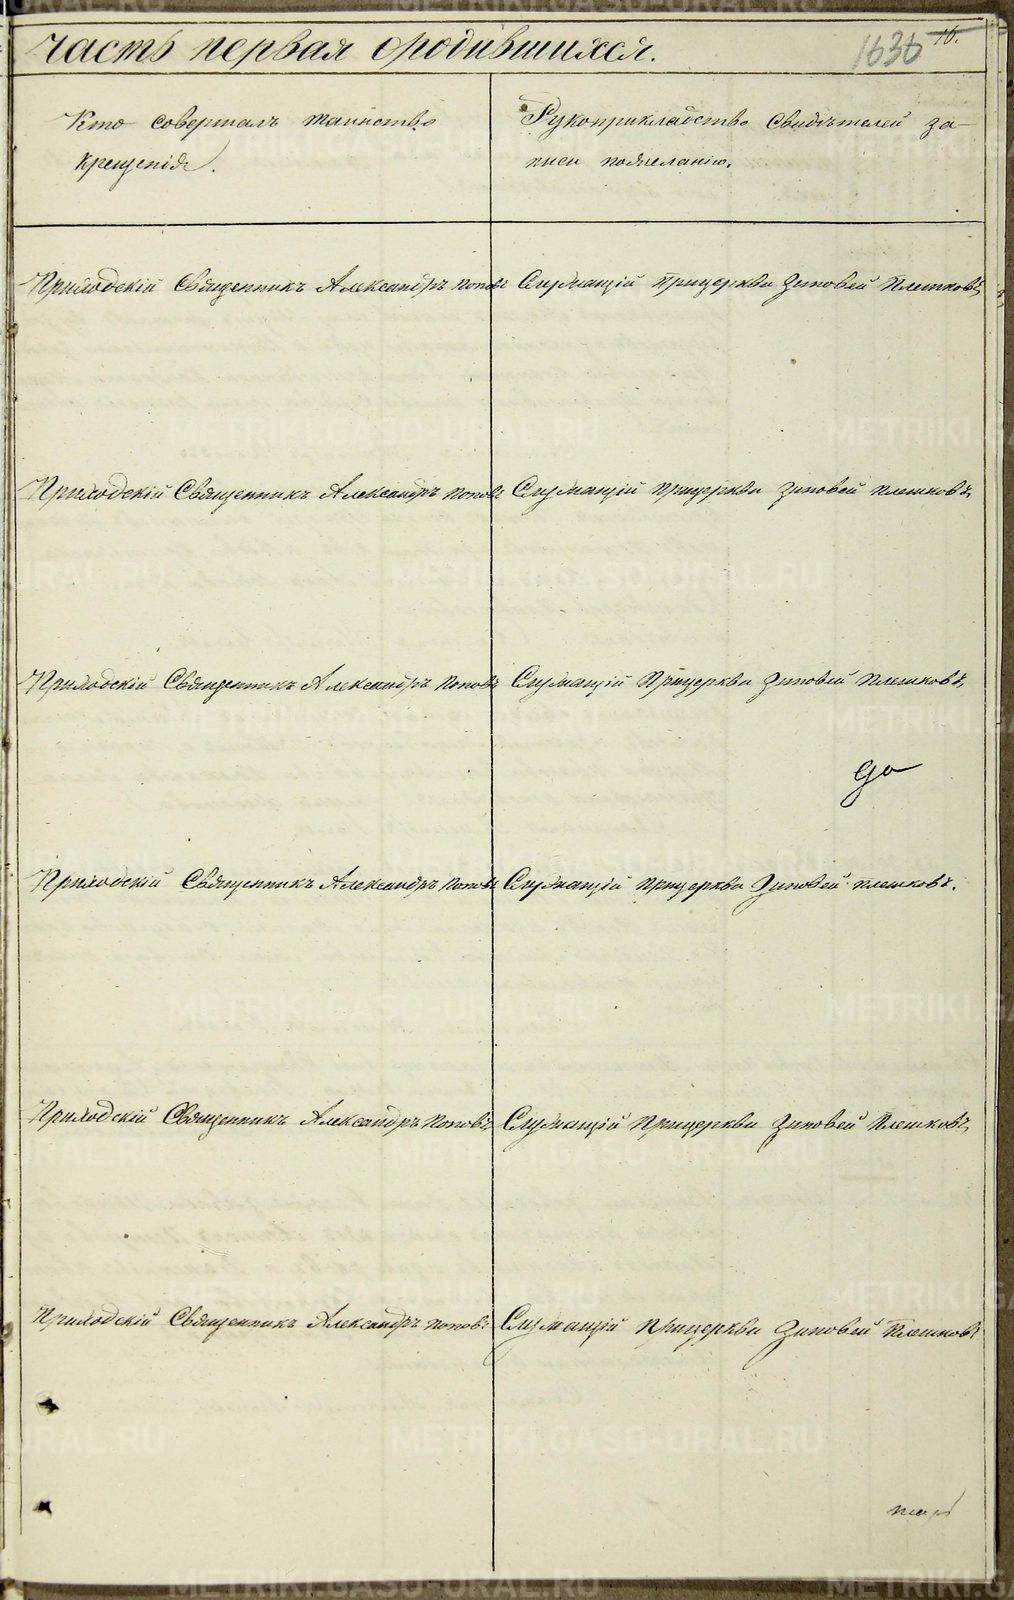 часть первая о родившихся.
1636 16.
Кто совершалъ таинство
крещенія.
Рукоприкладство свидѣтелей за-
писи по желанію.
Приходскій Священникъ Александръ Поповъ Служащій при церкви Зиновей Плешковъ
Приходскій Священникъ Александръ Поповъ Служащій при церкви Зиновей Плешковъ
Приходскій Священникъ Александръ Поповъ Служащій при церкви Зиновей Плешковъ
Приходскій Священникъ Александръ Поповъ Служащій при церкви Зиновей Плешковъ.
Приходскій Священникъ Александръ Поповъ Служащій при церкви Зиновей Плешковъ
Приходскій Священникъ Александръ Поповъ Служащій при церкви Зиновей Плешковъ
METRIKI.GASO-URAL.RU